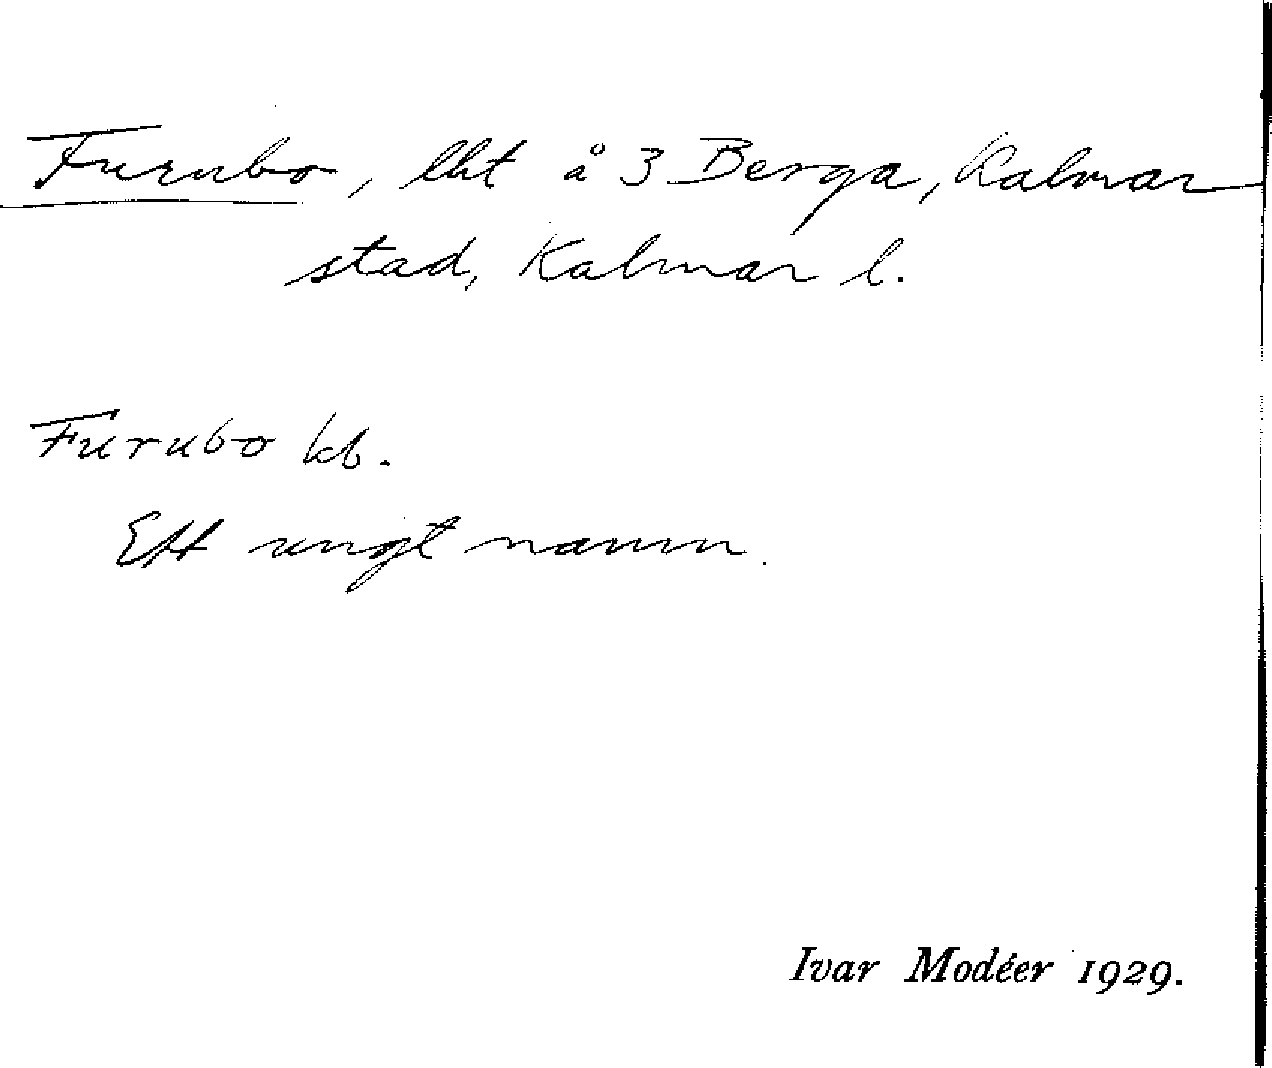 Furubo, lht å 3 Berga, Kalmar
stad, Kalmar l.
Furubo kb.
Ett ungt namn.
Ivar Modéer 1929.